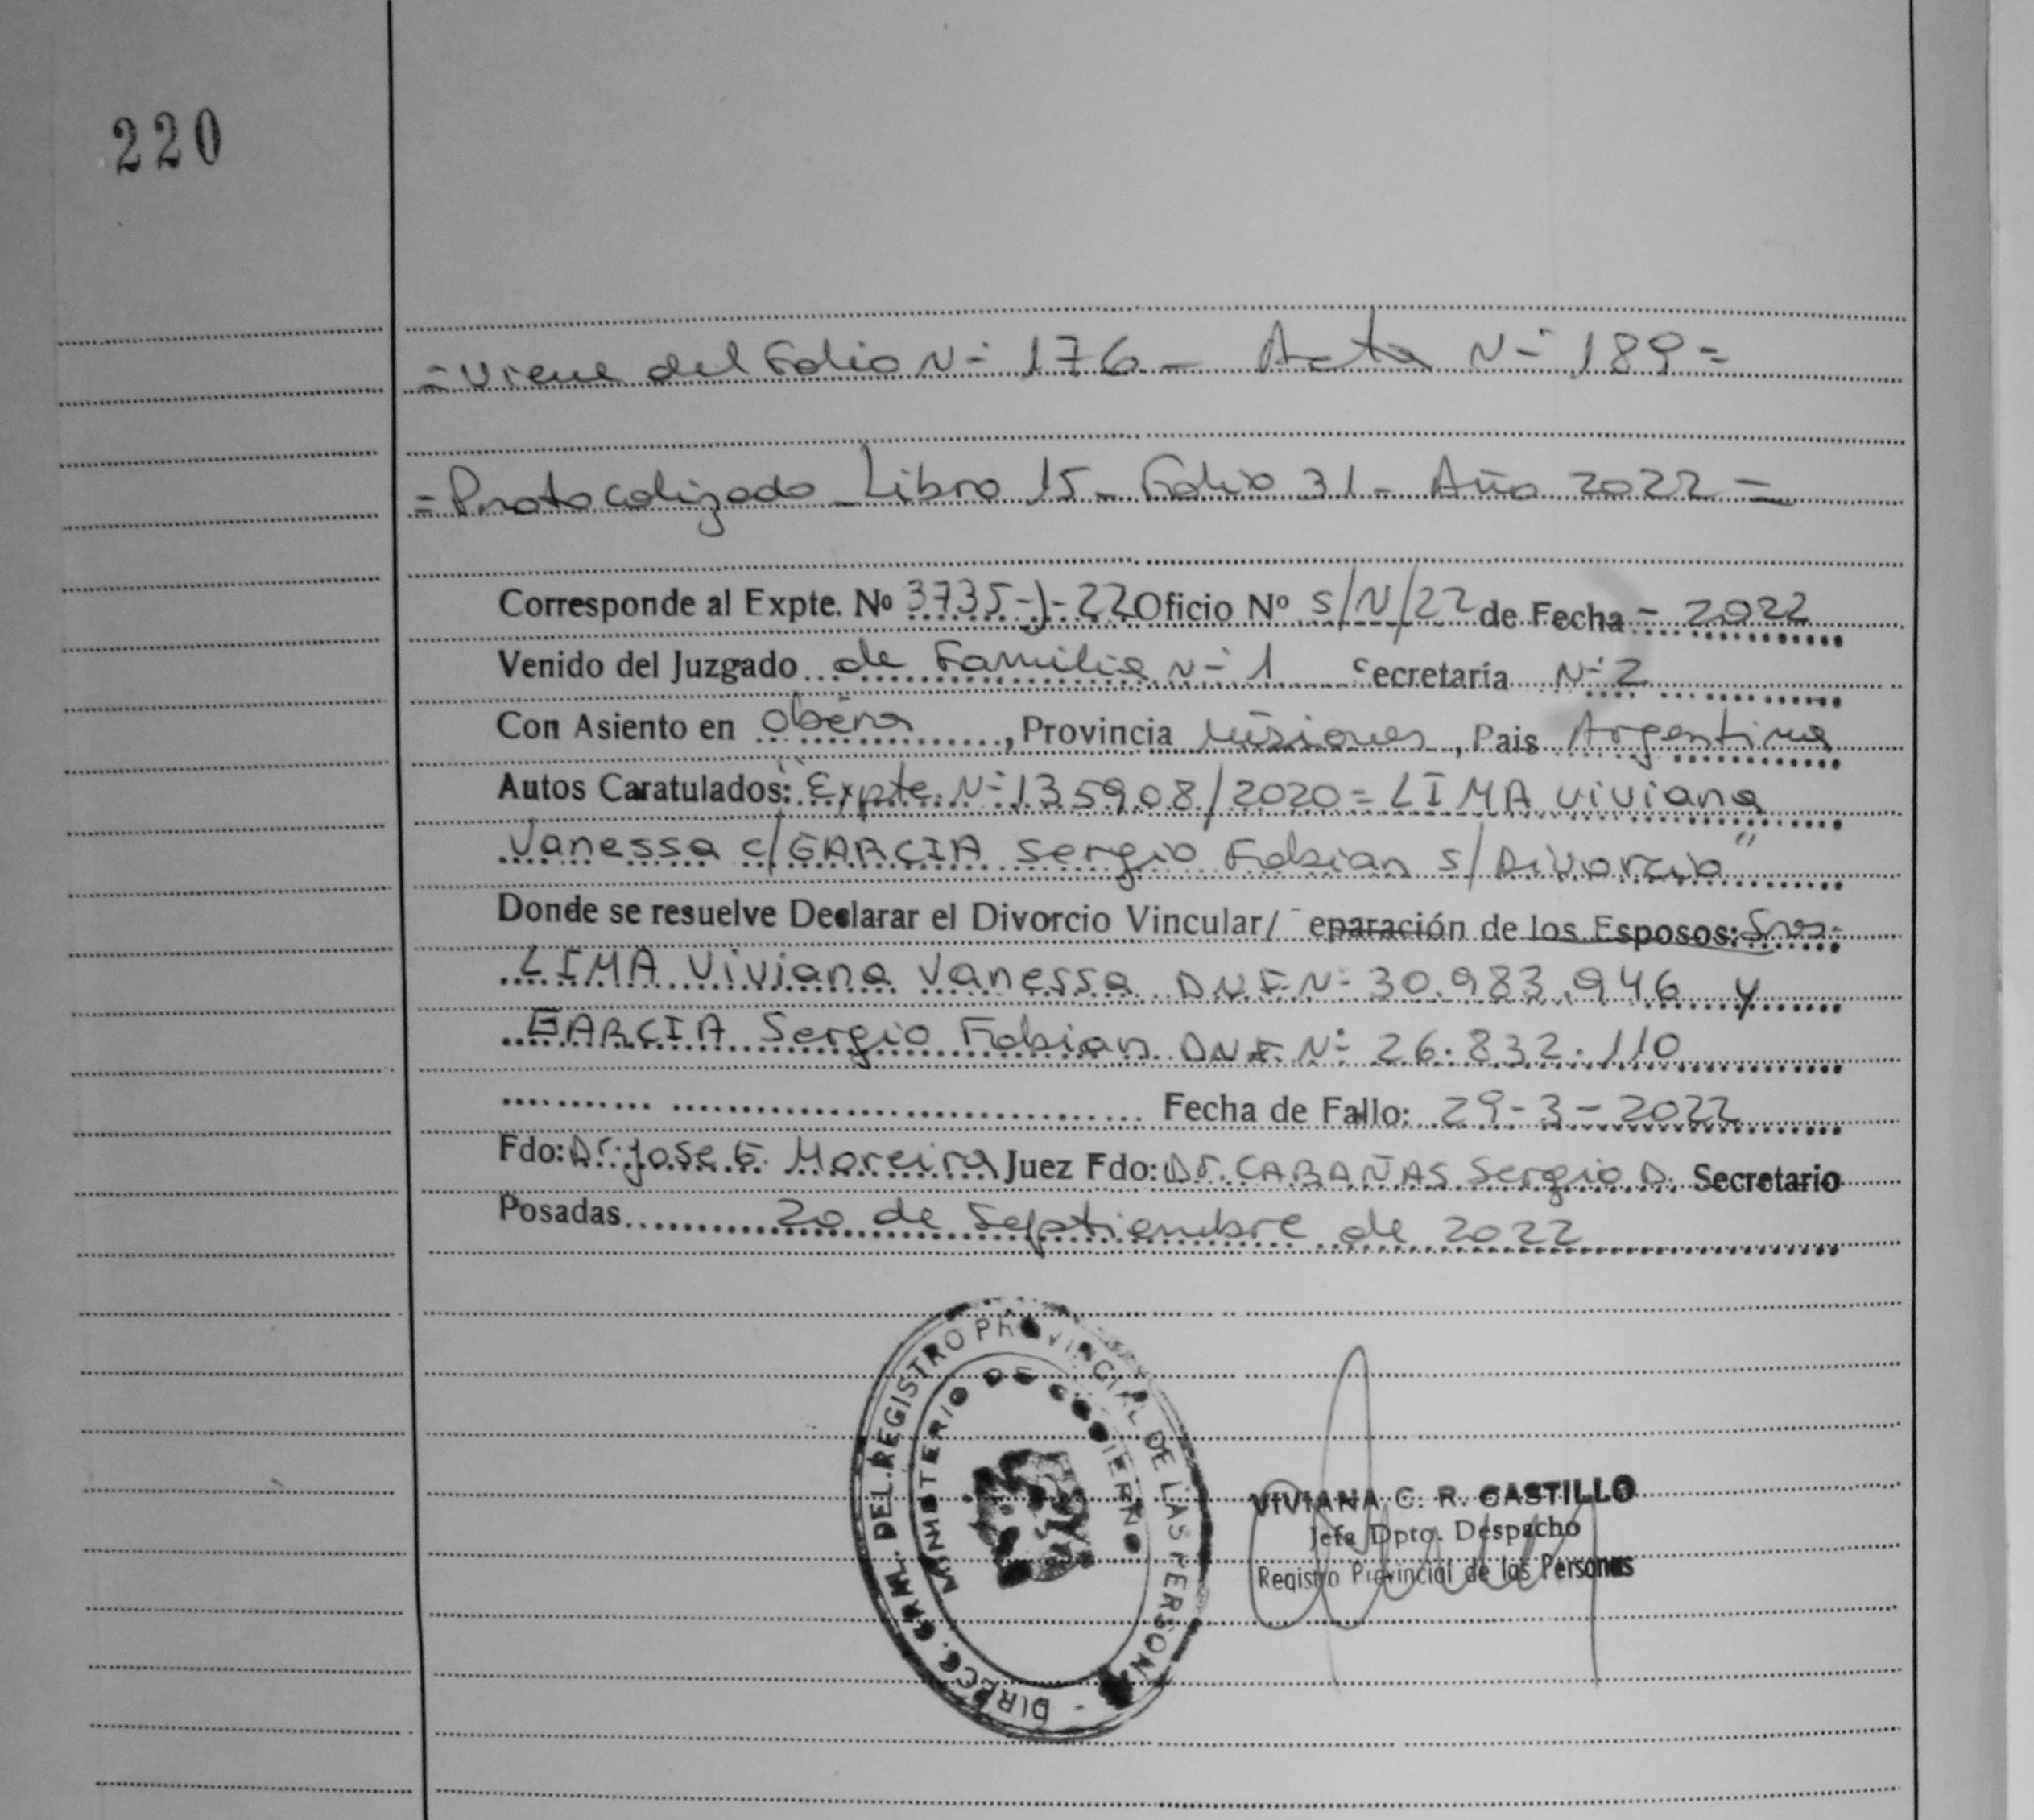 220
= Viene del Folio N- 176 - Acta N- 189 =
= Protocolizado - Libro 15 - Folio 31 - Año 2022 =
Corresponde al Expte. Nº 3735-J-22 Oficio Nº S/N/22 de Fecha - 2022
Venido del Juzgado de Familia N- 1 Secretaría N- 2
Con Asiento en Oberá, Provincia Misiones, Pais Argentina
Autos Caratulados: "Expte. N- 135908/2020 = LIMA Viviana
Vanessa c/ GARCIA Sergio Fabian s/ Divorcio"
Donde se resuelve Declarar el Divorcio Vincular/ eparación de los Esposos: Sres.
LIMA Viviana Vanessa DNI N- 30.983.946 y
GARCIA Sergio Fabian DNI N- 26.832.110
Fecha de Fallo: 29-3-2022
Fdo: Dr. Jose G. Moreira Juez Fdo: Dr. CABAÑAS Sergio D. Secretario
Posadas 20 de Septiembre de 2022
DIRECC. GRAL. DEL REGISTRO PROVINCIAL DE LAS PERSONAS
MINISTERIO DE GOBIERNO
VIVIANA C. R. CASTILLO
Jefa Dpto. Despacho
Registro Provincial de las Personas